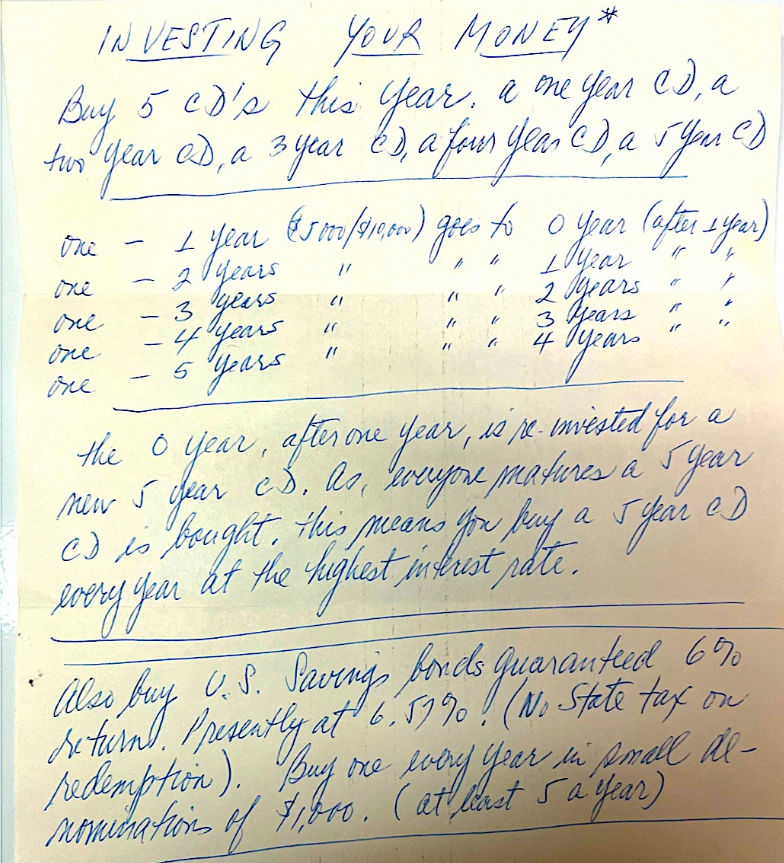 INVESTING YOUR MONEY*
Buy 5 CD's this year. a one year CD, a
two year CD, a 3 year CD, a four year CD, a 5 year CD
one - 1 year ($5000/$10,000) goes to 0 year (after 1 year)
one - 2 years " " " 1 year " "
one - 3 years " " " 2 years " "
one - 4 years " " " 3 years " "
one - 5 years " " " 4 years " "
The 0 year, after one year, is re-invested for a
new 5 year CD. As, everyone matures a 5 year
CD is bought. This means you buy a 5 year CD
every year at the highest interest rate.
Also buy U.S. Savings bonds guaranteed 6%
return. Presently at 6.57%. (No State tax on
redemption). Buy one every year in small de-
nominations of $1,000. (at least 5 a year)